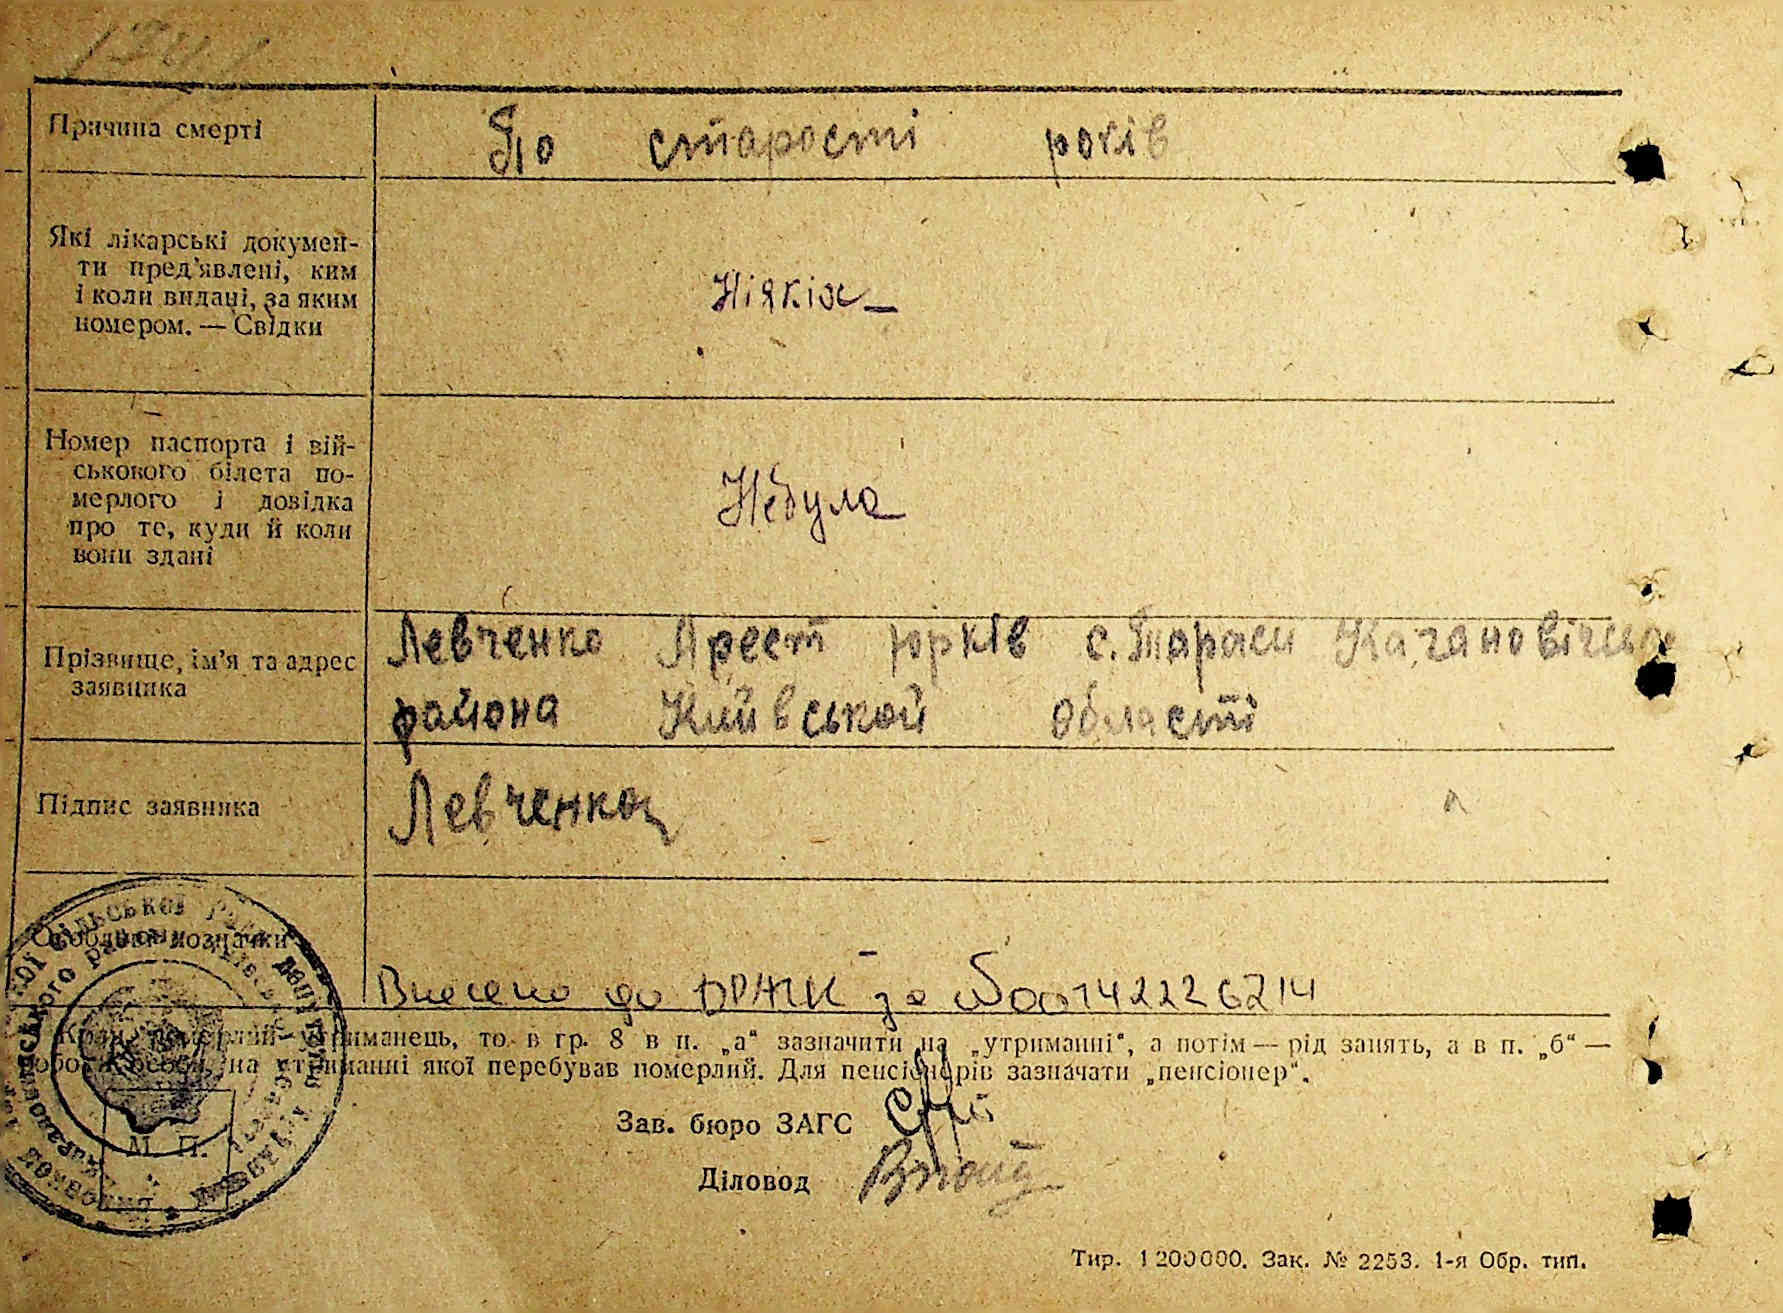 Причина смерті
По старості років
Які лікарські докумен-
ти пред'явлені, ким
і коли видані, за яким
номером. — Свідки
Ніякіх
Номер паспорта і вій-
ськового білета по-
мерлого і довідка
про те, куди й коли
вони здані
Небула
Прізвище, ім'я та адрес
заявника
Левченко Арест юрків с. Тараси Кагановічсько
района Київськой області
Підпис заявника
Левченко
Особливі позначки
Внесено до ДРАЦС за 00142226214
Коли померлий утриманець, то в гр. 8 в п. „а“ зазначити на „утриманні“, а потім — рід занять, а в п. „б“ —
особи, на утриманні якої перебував померлий. Для пенсіонерів зазначати „пенсіонер“.
Зав. бюро ЗАГС
Діловод
М. П.
сільської ради депутатів
району
Тир. 1 200 000. Зак. № 2253. 1-я Обр. тип.